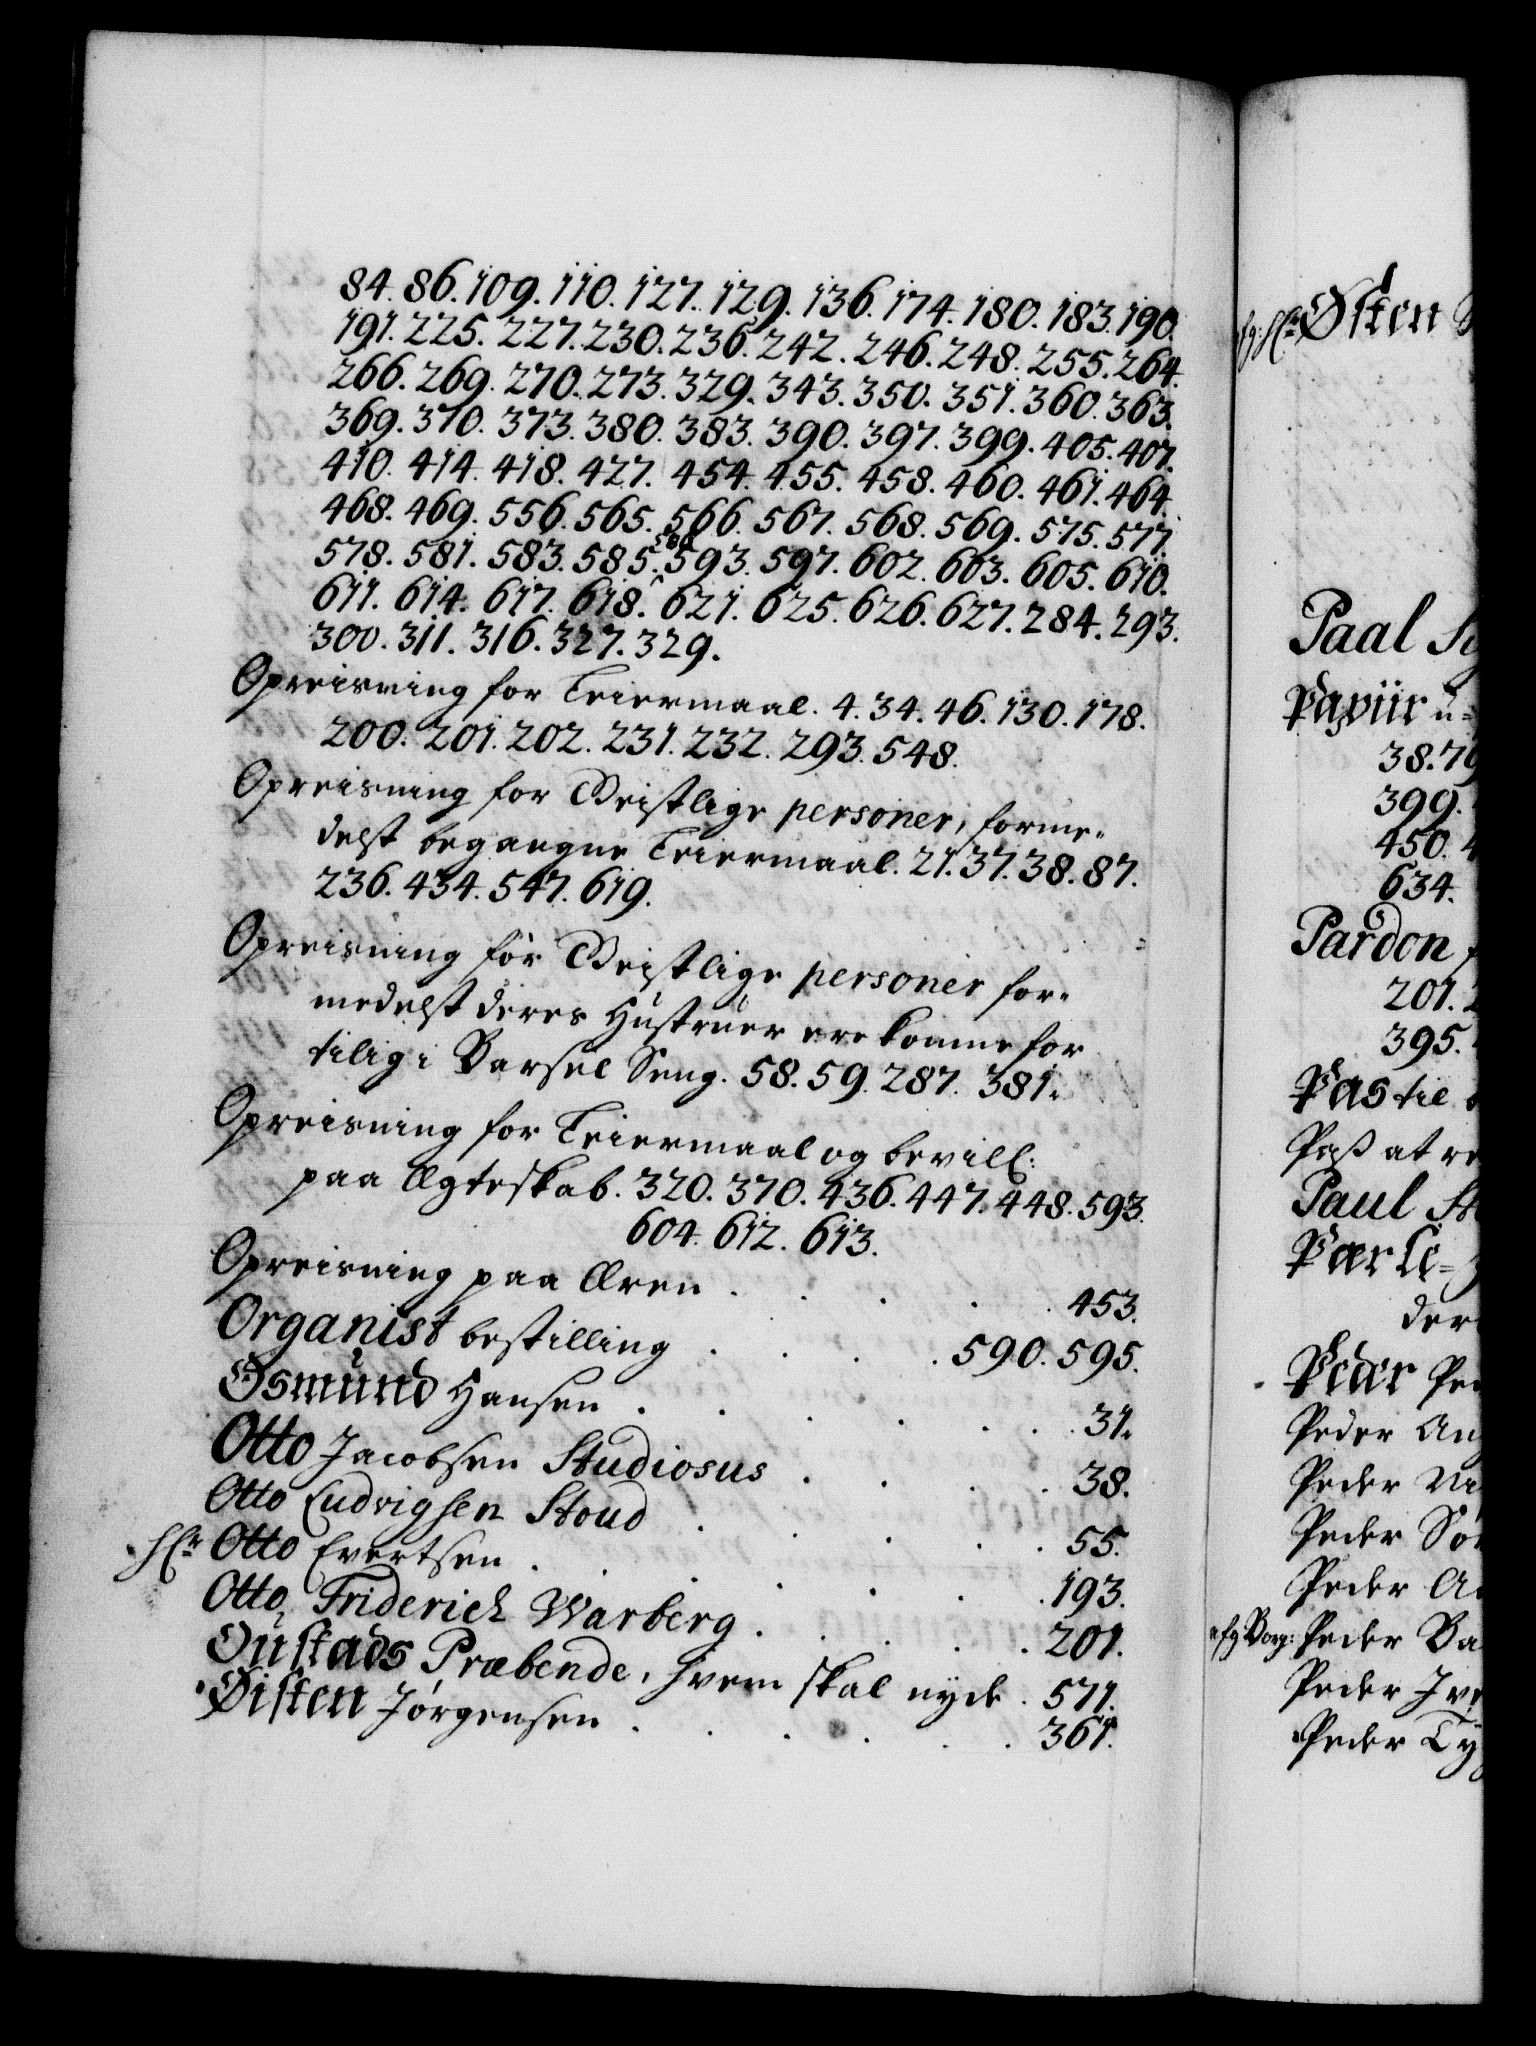 84. 86. 109. 110. 127. 129. 136. 174. 180. 183. 190.
191. 225. 227. 230. 236. 242. 246. 248. 255. 264.
266. 269. 270. 273. 329. 343. 350. 351. 360. 363.
369. 370. 373. 380. 383. 390. 397. 399. 405. 407.
410. 414. 418. 427. 454. 455. 458. 460. 461. 464.
468. 469. 556. 565. 566. 567. 568. 569. 575. 577.
578. 581. 583. 585. 593. 597. 602. 603. 605. 610.
611. 614. 617. 618. 621. 625. 626. 627. 284. 293.
300. 311. 316. 327. 329.
Opreisning for Leiermaal. 4. 34. 46. 130. 178.
200. 201. 202. 231. 232. 293. 548.
Opreisning for Geistlige personer, forme-
delst begangne Leiermaal. 21. 37. 38. 87.
236. 434. 547. 619.
Opreisning for Geistlige personer for-
medelst deres Hustruer ere komne for
tilig i Barsel Seng. 58. 59. 287. 381.
Opreisning for Leiermaal og bevill:
paa Ægteskab. 320. 370. 436. 447. 448. 593.
604. 612. 613.
Opreisning paa Æren . . . . 453.
Organist bestilling . . . . 590. 595.
Osmund Hansen . . . . . . 31.
Otto Jacobsen Studiosus . . . . 38.
Otto Ludvigsen Stoud . . . . . 55.
Hr Otto Evertsen . . . . . 193.
Otto Friderich Warberg . . . . 201.
Oustads Præbende, hvem skal nyde . 571.
Øisten Jørgensen . . . . . 361.
Østen
Paal
Papiir
38. 79
399.
450. 4
634.
Pardon
201. 2
395.
Pas til
Pass at re
Paul
Perle-
der
Peder
Peder
Peder
Peder
Peder
Peder
Peder
Peder